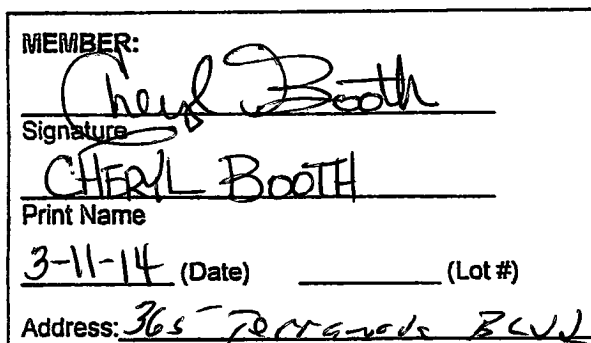 MEMBER:
Cheryl Booth
Signature
CHERYL BOOTH
Print Name
3-11-14 (Date) (Lot #)
Address: 365 BLVD